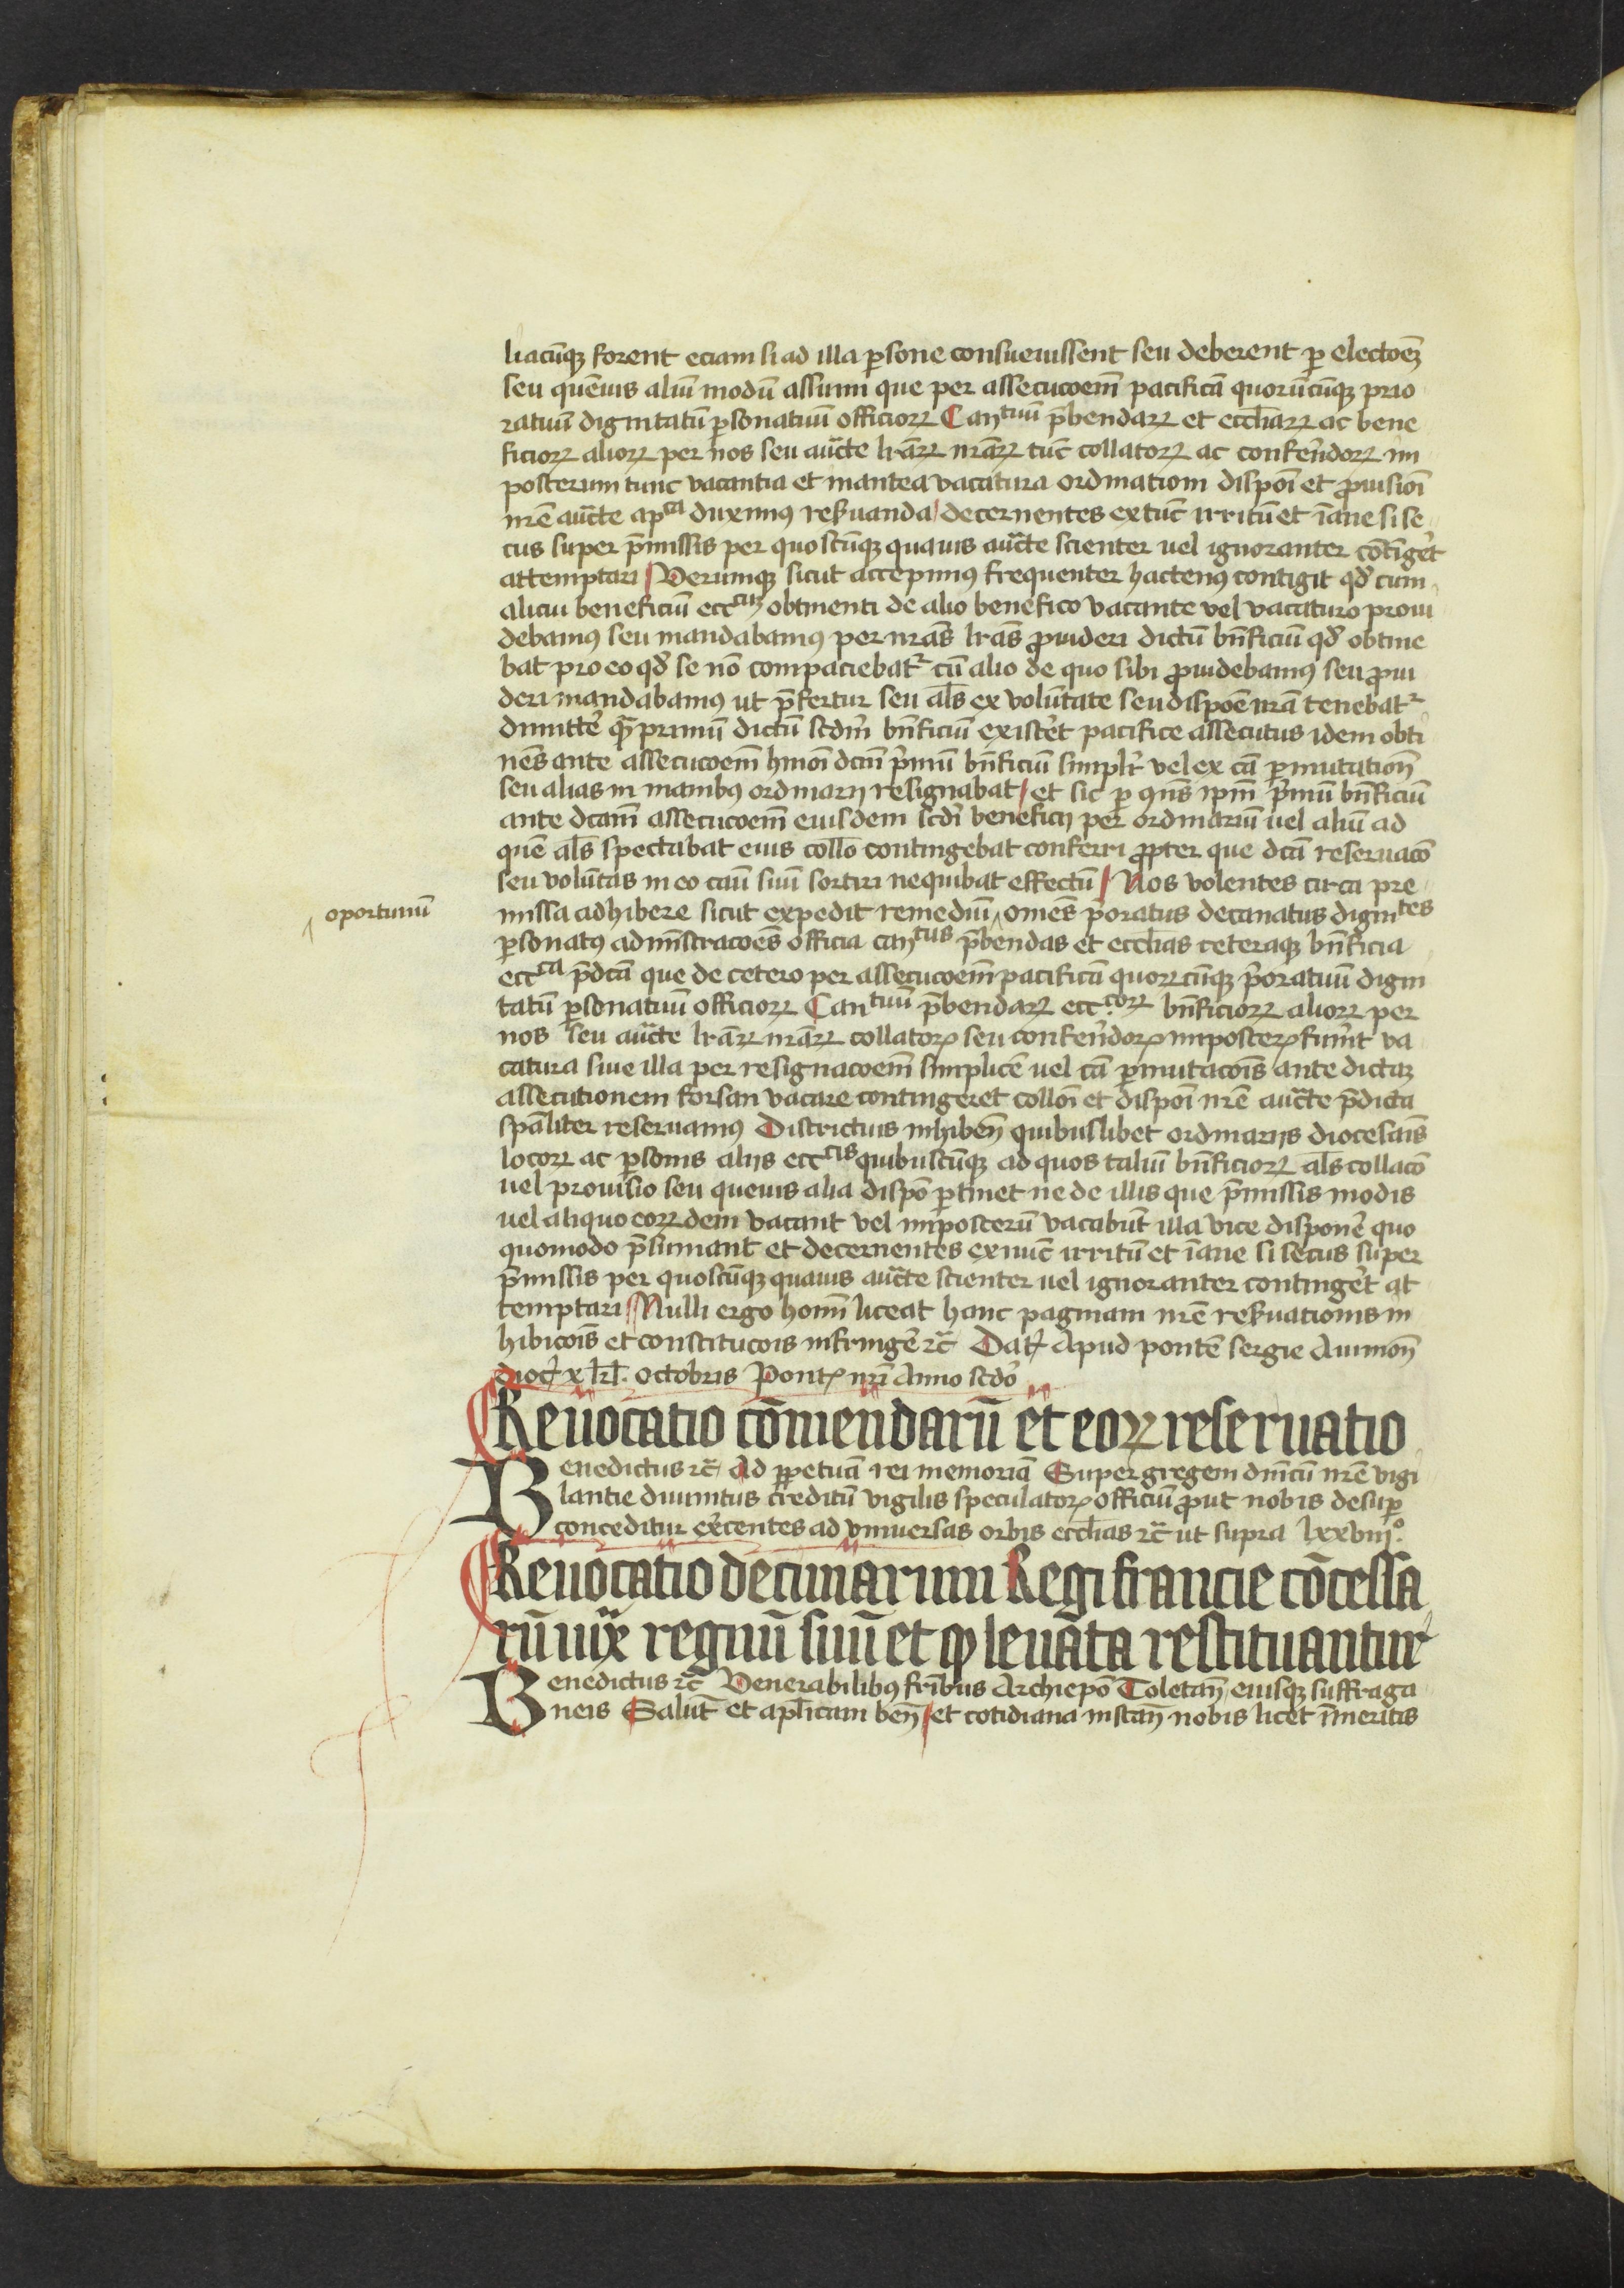 liacūqꝫ forent eciam si ad illa ꝑsone consueuissent seu deberent ꝑ electoēꝫ
seu quēuis aliū modū assumi que per assecucoem̄ pacificā quorūcūqꝫ prio
ratuū dignitatū ꝑsonatuū officioꝝ Canᵗᵘᵘ̄ p̄bendaꝝ et eccl̄iaꝝ ac bene
ficioꝝ alioꝝ per nos seu auc̄te lr̄aꝝ nr̄aꝝ tūc collatoꝝ ac conferēdoꝝ im
posterum tunc vacantia et inantea vacatura ordinationi disponī et ꝓuisionī
nr̄e auc̄te apᶜᵃ duximꝰ reẜuanda / decernentes extūc irritū et īane si se
cus super p̄missis per quoscūqꝫ quauis auc̄te scienter uel ignoranter cōtīgēt
attemptari Verumqꝫ sicut accepimꝰ frequenter hactenꝰ contigit qd̄ cum
alicui beneficiū eccᶜᵘꝫ obtinenti de alio benefico vacante vel vacaturo proui
debamꝰ seu mandabamꝰ per nrās lrās ꝓuideri dictū bn̄ficiū qd̄ obtine
bat pro eo qd̄ se nō compaciebatʳ cū alio de quo sibi ꝓuidebamꝰ seu ꝓui
deri mandabamꝰ ut p̄fertur seu al̄s ex volūtate seu dispoē nrā tenebatʳ
dimittē qꝫ primū dictū scd̄m bn̄ficiū existēt pacifice assecutus idem obti
nēs ante assecucoem̄ hmōi dcm̄ p̄mū bn̄ficiū simplr̄ vel ex cā ꝑmutation̄
seu alias in manibꝰ ordinarij resignabat / et sic ꝑ ꝯn̄s ipm̄ p̄mū bn̄ficiū
ante dcam̄ assecucoem̄ eiusdem scd̄i beneficij per ordinariū uel aliū ad
quē al̄s spectabat eius collō contingebat conferri ꝓpter que dcā reseruacō
seu volūtas in eo casu suū sortiri nequibat effectū / Nos volentes circa pre
oportunū
missa adhibere sicut expedit remediū ˄ omēs p̄oratus decanatus dignitᵉˢ
ꝑsonatꝰ admīstracoēs officia canᵗᵘˢ p̄bendas et eccl̄ias ceteraqꝫ bn̄ficia
eccᶜᵃ p̄dcā que de cetero per assecucoem̄ pacificā quoꝝcūqꝫ p̄oratuū digni
tatū ꝑsonatuū officioꝝ Canᵗᵘᵘ̄ p̄bendaꝝ eccᶜᵒꝝ bn̄ficioꝝ alioꝝ per
nos seu auc̄te lr̄aꝝ nr̄aꝝ collatoꝝ seu conferēdoꝝ imposteꝝ fuerīt va
catura siue illa per resignacoem̄ simplicē uel cā ꝑmutacōis ante dictaꝫ
assecutionem forsan vacare contingeret collōi et disponī nr̄e auc̄te p̄dicta
spāliter reseruamꝰ Districtuis inhiben̄ quibuslibet ordinarijs diocesāis
locoꝝ ac ꝑsonis alijs eccᶜⁱˢ quibuscūqꝫ ad quos taliū bn̄ficioꝝ al̄s collacō
uel prouisio seu queuis alia dispō ꝑtinet ne de illis que p̄missis modis
uel aliquo eoꝝdem vacant vel imposterū vacabūt illa vice disponē quo
quomodo p̄sumant et decernentes exnūc irritū et īane si secus super
p̄missis per quoscūqꝫ quauis auc̄te scienter uel ignoranter contingēt at
temptari Nulli ergo homī liceat hanc paginam nr̄e reẜuationis in
hibicōis et constitucois infringē ꝛc̄ Datꝭ Apud pontē sergie Auinion̄
dioc̄ x kl̄. octobris Pontꝭ nr̄i Anno scdō
Reuocatio cōmendarū et eoꝝ reseruatio
Benedictus ꝛc̄ Ad ꝑpetuā rei memoriā Super gregem dn̄icū nr̄e vigi
lantie diuinitus creditū vigilis speculatoꝝ officiū ꝓut nobis desuꝑ
conceditur ex̄centes ad vniuersas orbis eccl̄ias ꝛc̄ ut supra lxxviijº.
Reuocatio decimarum Regi francie cōcessa
rū iux̄ regnū suū et ꝙ leuata restituantur
Benedictus ꝛc̄ Venerabilibꝰ fr̄ibus Archiepō Toletan̄ eiusqꝫ suffraga
neis Salut̄ et apl̄icam ben̄ / et cotidiana instan̄ nobis licet īmeritis